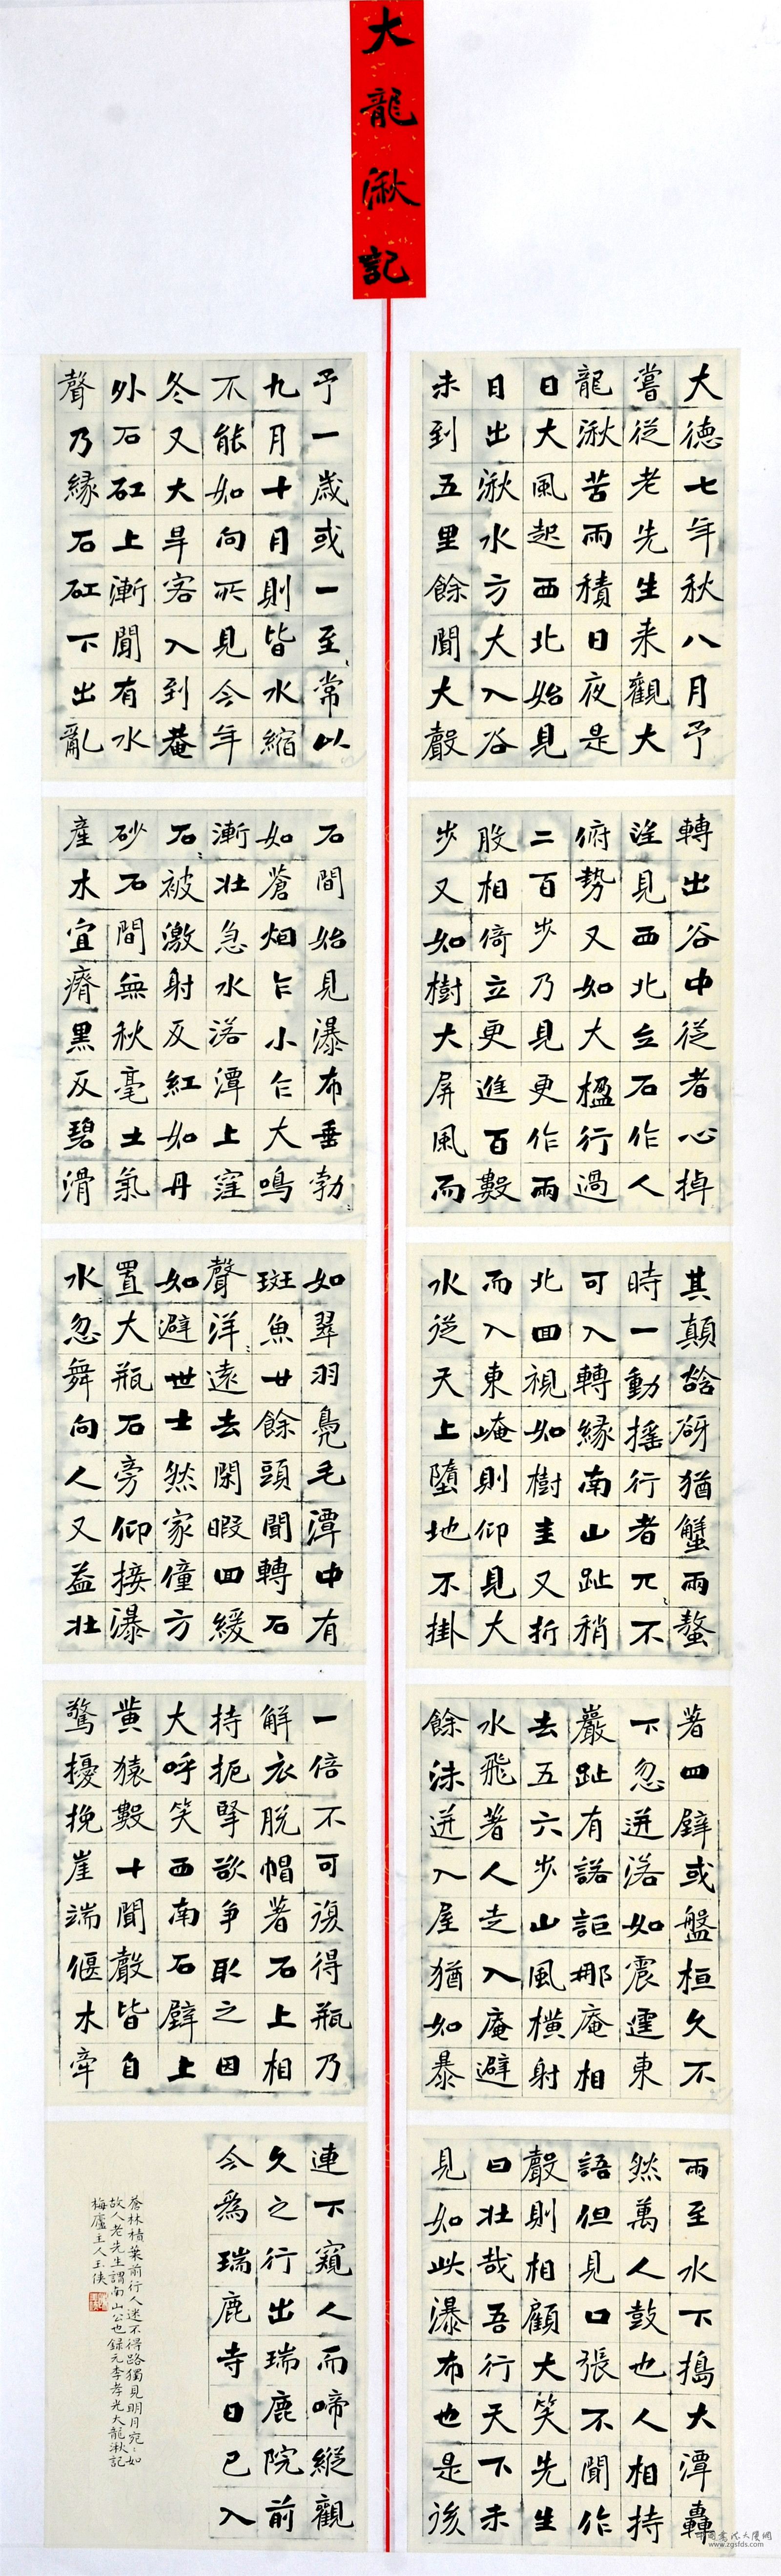 大龍湫記
大德七年秋八月予
嘗從老先生来觀大
龍湫苦雨積日夜是
日大風起西北始見
日出湫水方大入谷
未到五里餘聞大聲
轉出谷中從者心掉
望見西北立石作人
俯勢又如大楹行過
二百步乃見更作兩
股相倚立更進百數
步又如樹大屏風而
其顛谽谺猶蟹兩螯
時一動搖行者兀〻不
可入轉緣南山趾稍
北回視如樹圭又折
而入東崦則仰見大
水從天上墮地不掛
著四壁或盤桓久不
下忽迸落如震霆東
巖趾有諾詎那庵相
去五六步山風橫射
水飛著人走入庵避
餘沫迸入屋猶如暴
雨至水下搗大潭轟
然萬人鼓也人相持
語但見口張不聞作
聲則相顧大笑先生
曰壯哉吾行天下未
見如此瀑布也是後
予一歲或一至〻常以
九月十月則皆水縮
不能如向所見今年
冬又大旱客入到菴
外石矼上漸聞有水
聲乃緣石矼下出亂
石間始見瀑布垂勃〻
如蒼烟乍小乍大鳴
漸壯急水落潭上窪
石〻被激射反紅如丹
砂石間無秋毫土氣
產木宜瘠黑反碧滑
如翠羽鳧毛潭中有
斑魚廿餘頭聞轉石
聲洋〻遠去閑暇回緩
如避世士然家僮方
置大瓶石旁仰接瀑
水忽舞向人又益壯
一倍不可復得瓶乃
解衣脫帽著石上相
持扼掔欲爭取之因
大呼笑西南石壁上
黄猿數十聞聲皆自
驚擾挽崖端偃木牽
連下窺人而啼縱觀
久之行出瑞鹿院前
今為瑞鹿寺日已入
蒼林積葉前行人迷不得路獨見明月宛〻如
故人老先生謂南山公也錄元李孝光大龍湫記
梅廬主人玉俠
中國書法大厦網
www.zgsfds.com